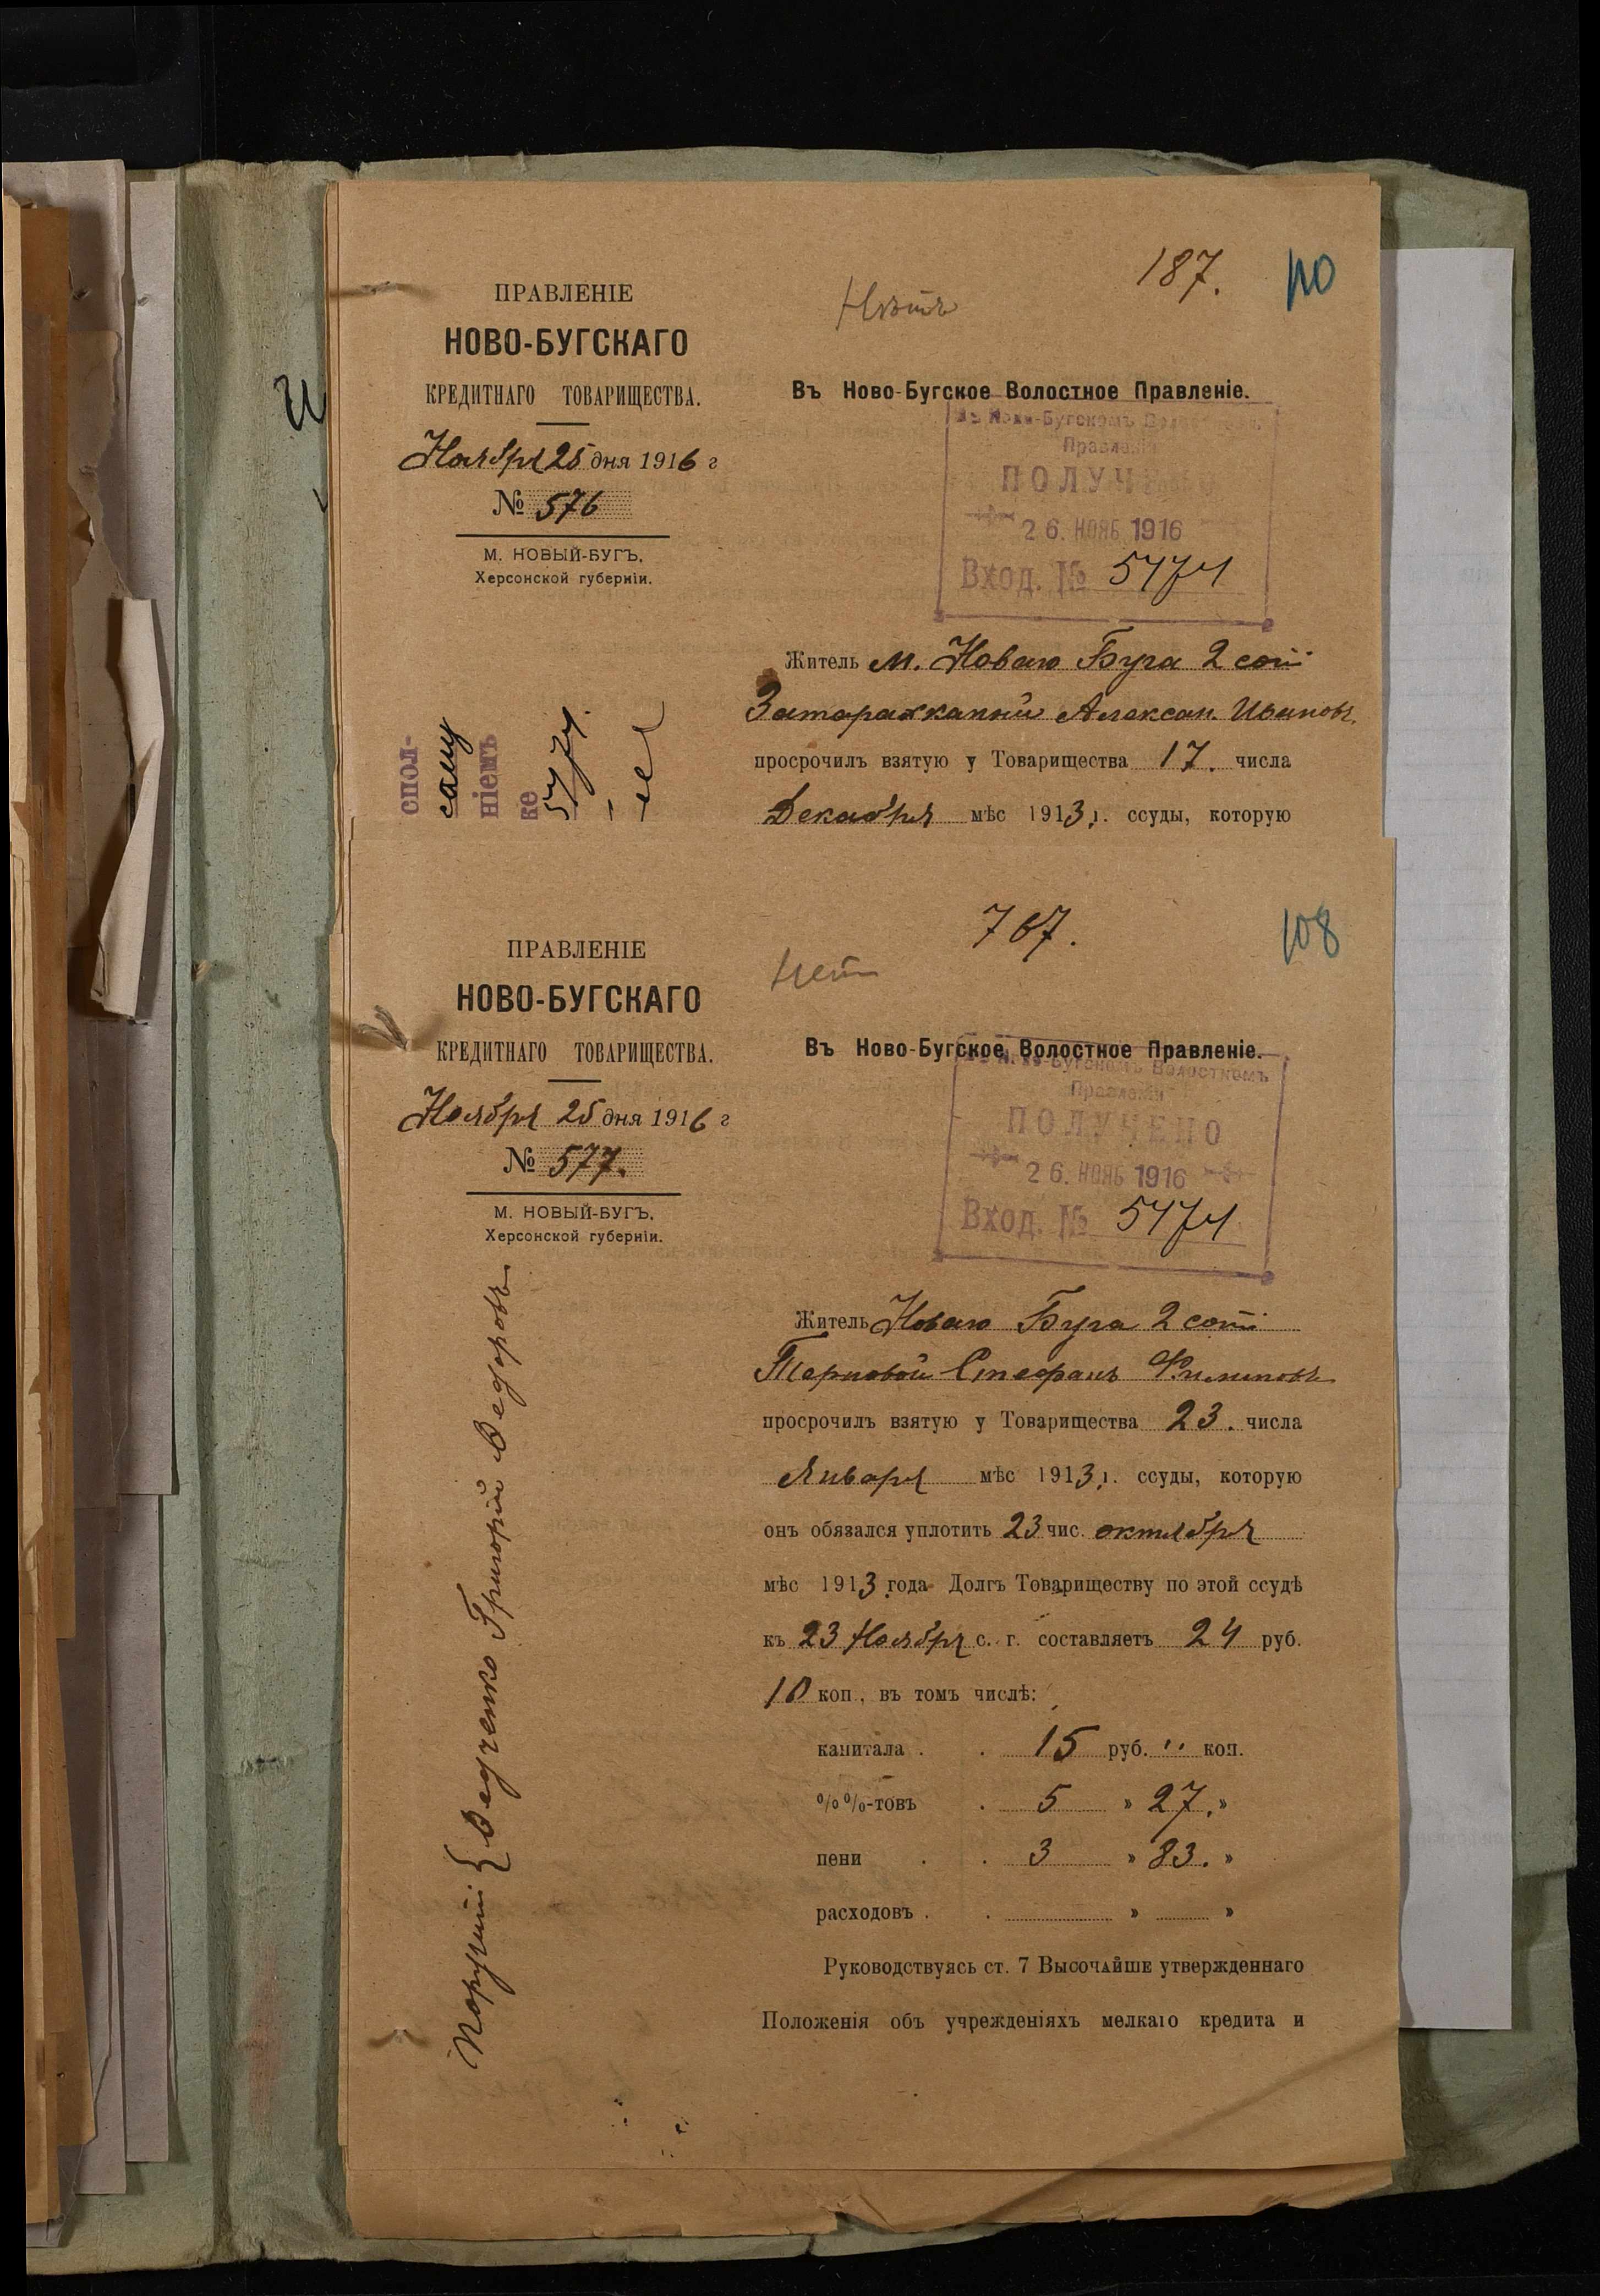 187.
110
Нѣтъ
ПРАВЛЕНІЕ
НОВО-БУГСКАГО
КРЕДИТНАГО ТОВАРИЩЕСТВА.
Ноября 25 дня 1916 г
№ 576
М. НОВЫЙ-БУГЪ,
Херсонской губерніи.
Въ Ново-Бугское Волостное Правленіе.
Въ Ново-Бугскомъ Волостномъ
Правленіи
ПОЛУЧ
26. НОЯБ 1916
Вход. № 5474
Житель м. Новаго Буга 2 сот
Александ. Ивановъ
просрочилъ взятую у Товарищества 17. числа
Декабря мѣс 1913 г. ссуды, которую
спол-
ніемъ
ке
767.
108
Нет
ПРАВЛЕНІЕ
НОВО-БУГСКАГО
КРЕДИТНАГО ТОВАРИЩЕСТВА.
Ноября 25 дня 1916 г
№ 577.
М. НОВЫЙ-БУГЪ,
Херсонской губерніи.
Въ Ново-Бугское Волостное Правленіе.
Въ Ново-Бугскомъ Волостномъ
Правленіи
ПОЛУЧЕНО
26. НОЯБ 1916
Вход. № 5474
Житель Новаго Буга 2 сот
Терновой Стефанъ Филиповъ
просрочилъ взятую у Товарищества 23. числа
Января мѣс 1913 г. ссуды, которую
онъ обязался уплотить 23 чис. октября
мѣс 1913 года Долгъ Товариществу по этой ссудѣ
къ 23 Ноября с. г. составляетъ 24 руб.
10 коп., въ томъ числѣ:
капитала . . 15 руб. " коп.
%%-товъ . 5 » 27. »
пени . . 3 » 83. »
расходовъ . . » »
Руководствуясь ст. 7 Высочайше утвержденнаго
Положенія объ учрежденіяхъ мелкаго кредита и
Ѳедченко Григорій Ѳедоровъ